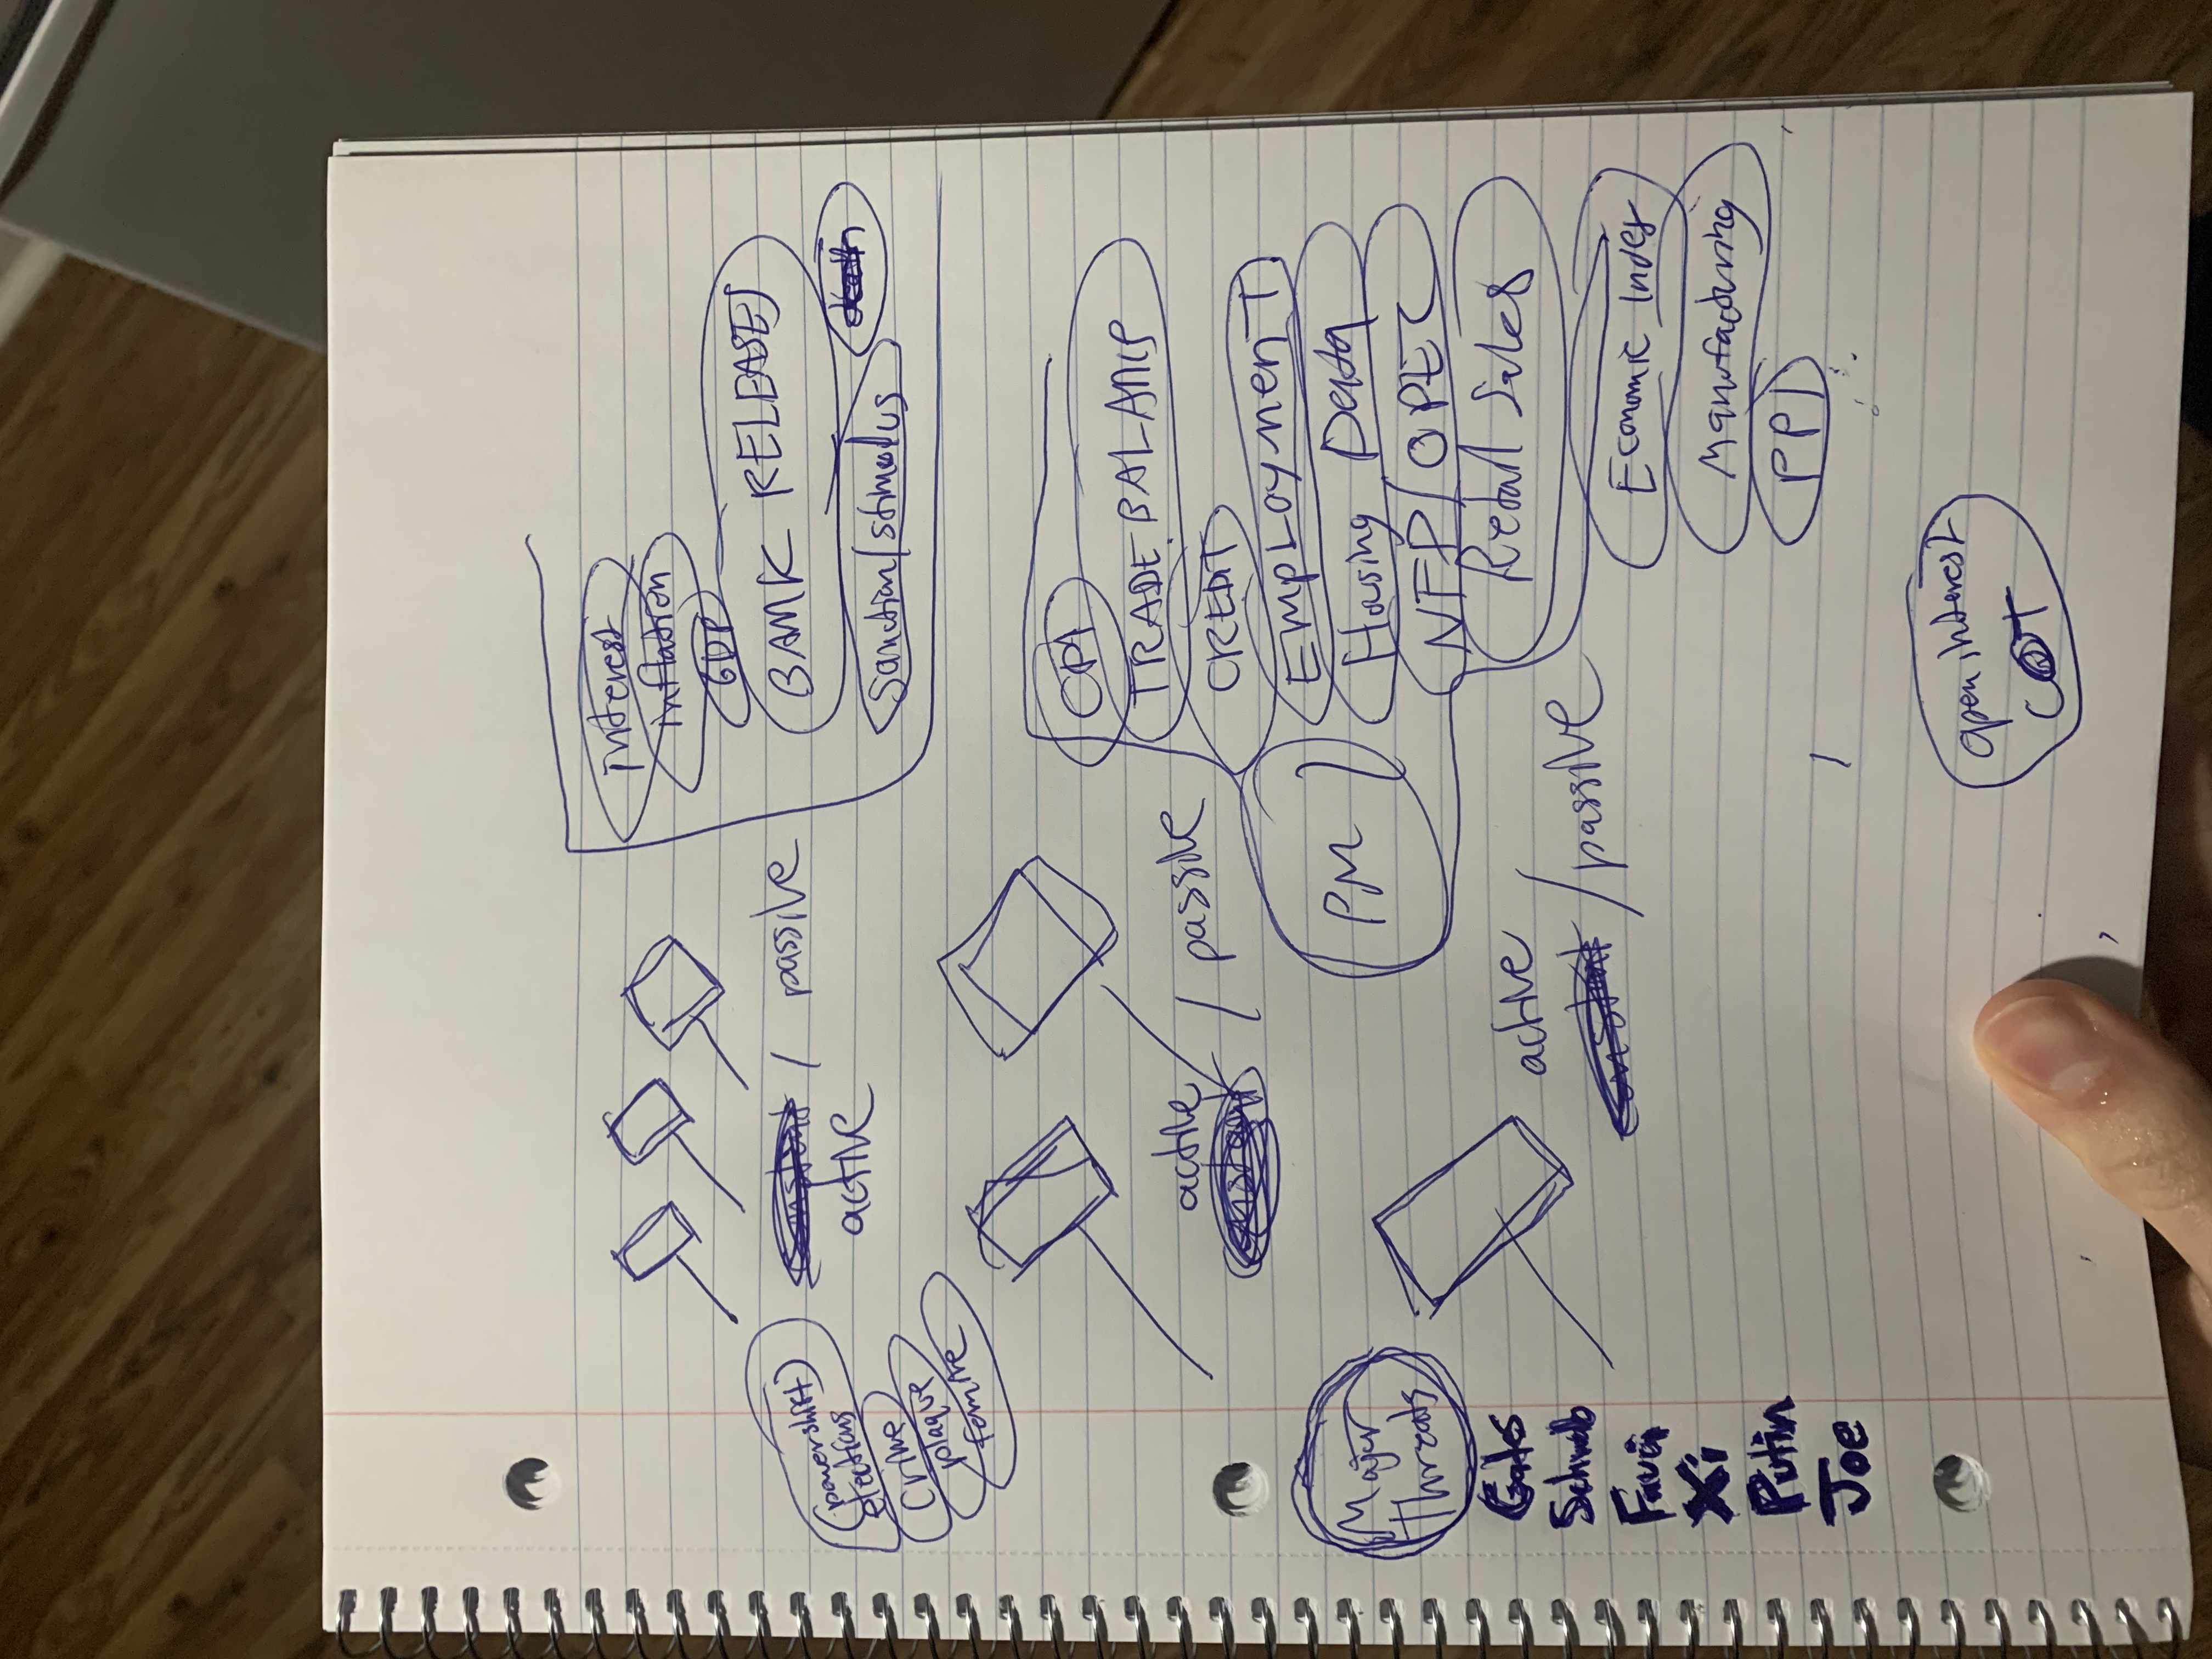 Interest
inflation
GDP
BANK RELEASES
Sanction/stimulus
/ passive
active
(powershift)
elections
Crime
plaque
famine
CPI
TRADE BALANCE
CREDIT
EmployMENT
Housing Data
NFP/OPEC
Retail Sales
Economic Index
Manufacturing
PPI
active
/ passive
PMI
active
/passive
Major
Threats
Gates
Schwab
Fauci
Xi
Putin
Joe
open interest
COT